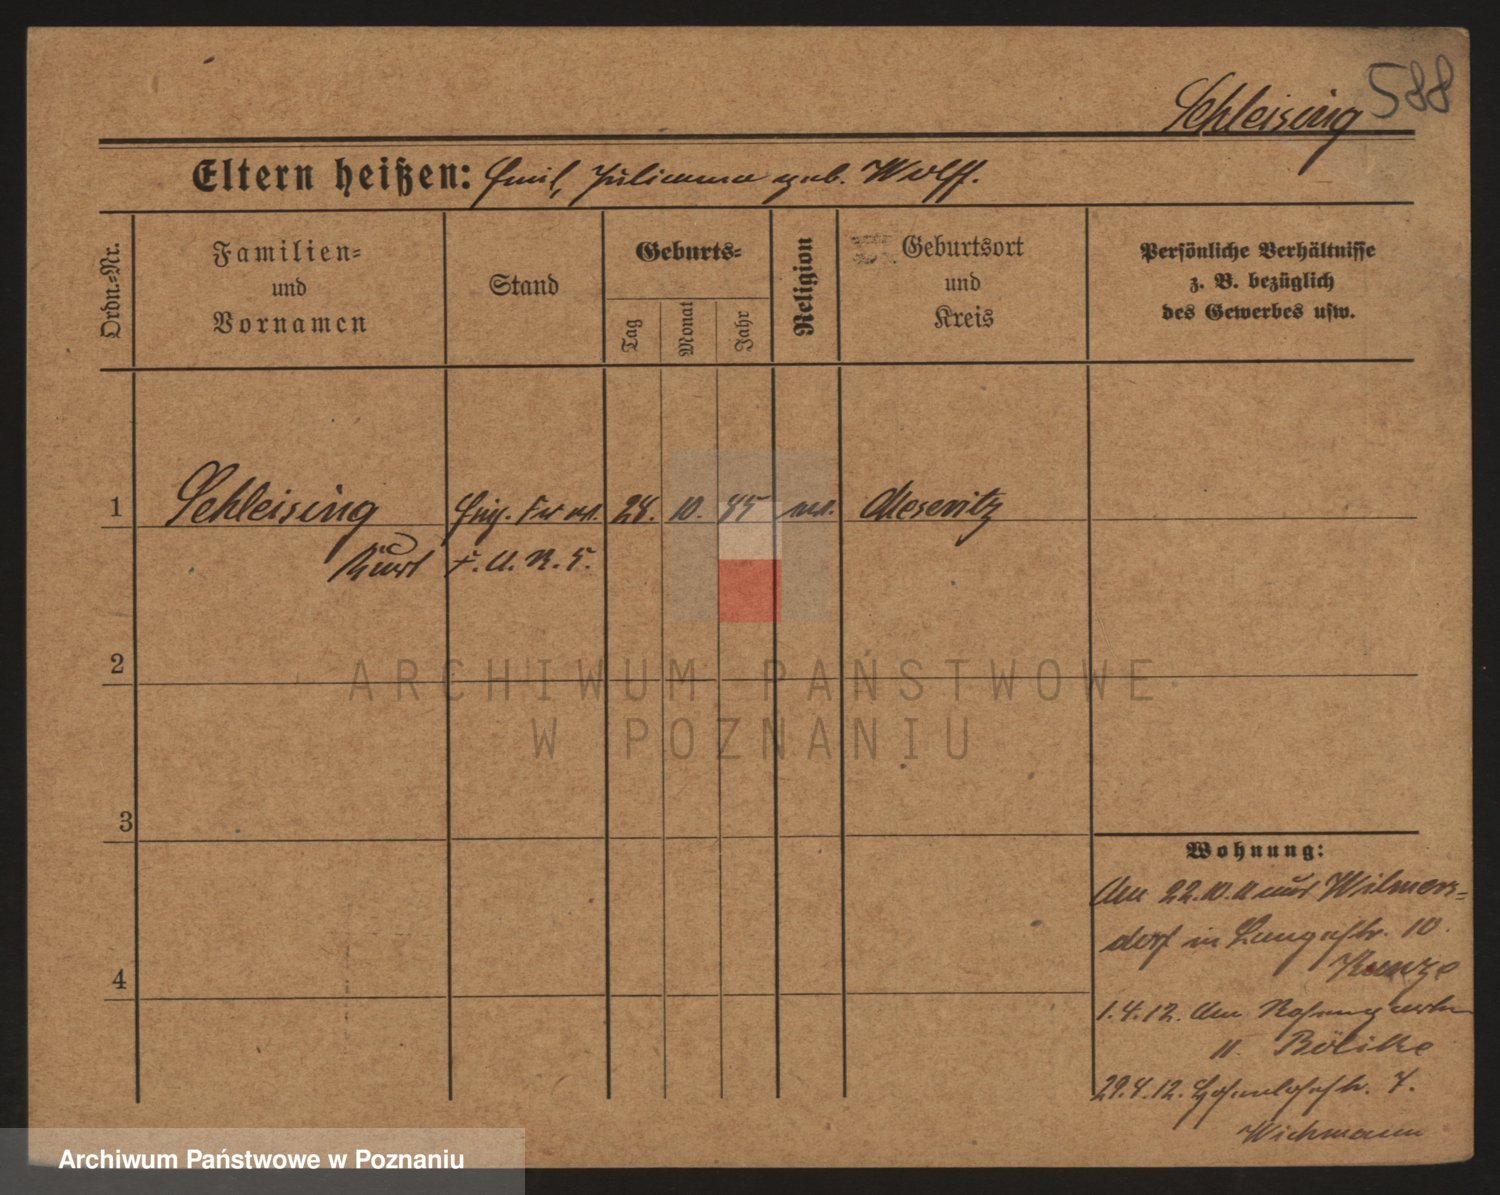 588
Schleising
Eltern heißen: Emil, Julianna geb. Wolff.
Ordn.-Nr.
Familien-
und
Vornamen
Stand
Geburts-
Tag
Monat
Jahr
Religion
Geburtsort
und
Kreis
Persönliche Verhältnisse
z. B. bezüglich
des Gewerbes usw.
1 Schleising 28. 10. 85 Meseritz
Kurt F. A. R. 5.
2
3
4
Wohnung:
22.10.11 aus Wilmers-
dorf in Langestr. 10.
Kunze
1.4.12. Am
11. Bölike
29.4.12. Hohenlohestr. 7.
Wichmann
ARCHIWUM PAŃSTWOWE
W POZNANIU
Archiwum Państwowe w Poznaniu